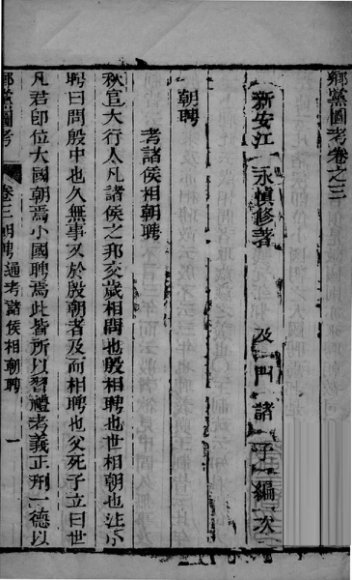 鄉黨圖考卷之三
新安江 永慎修著 及門諸子編次
朝聘
考諸侯相朝聘
秋官大行人凡諸侯之邦交歲相問也殷相聘也世相朝也注小
聘曰問殷中也久無事又於殷朝者及而相聘也父死子立曰世
凡君即位大國朝焉小國聘焉此皆所以習禮考義正刑一德以
鄉黨圖考 卷三朝聘 通考諸侯相朝聘 一